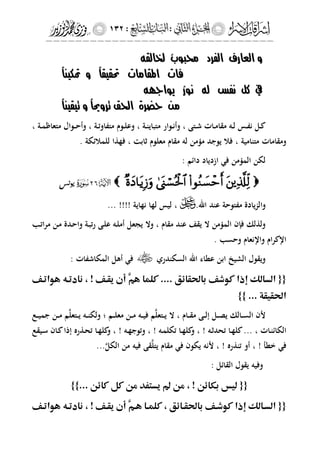 إشراقات الإسراء الجزء الثاني : البحث السابع : ١٣٢
و العارف الفرد محبوب لخالقه
فات المقامات تحقيقاً و تمكيناً
في كل نفس له نور يواجهه
من حضرة الحق ترويحاً و يقيناً
كل نفس لـه مقامـات شـتى ، وأنـوار متباينـة ، وعلـوم متفاوتـة ، وأحـوال متعاظمـة ،
ومقامات متنامية ، فلا يوجد مؤمن له مقام معلوم ثابت ، فهذا للملائكة .
لكن المؤمن في ازدياد دائم :
﴿ لِّلَّذِينَ أَحْسَنُوا۟ ٱلْحُسْنَىٰ وَزِيَادَةٌ ﴾ الآية٢٦ سورة يونس
والزيادة مفتوحة عند الله ، ليس لها نهاية !!!! ...
ولذلك فإن المؤمن لا يقف عند مقام ، ولا يجعل أمله على رتبـة واحـدة مـن مراتـب
الإكرام والإنعام وحسب .
ويقول الشيخ ابن عطاء الله السكندري في أهل المكاشفات :
{{ السالك إذا كوشف بالحقائق .... كلما همَّ أن يقف ! ، نادته هواتـف
الحقيقة ... }}
لأن السـالك يصـل إلـى مقـام ، لا يـتعلَّم فيـه مـن معلـم ؛ ولكنـه يـتعلَّم مـن جميـع
الكائنـات ، ... كلهـا تحدثـه ! ، وكلهـا تكلمـه ! ، وتوجهـه ! ، وكلهـا تحـذره إذا كـان سيقع
في خطأ ! ، أو تنذره ! ، لأنه يكون في مقام يتلَّقى فيه من الكلِّ...
وفيه يقول القائل :
{{ ليس بكائن ! ، من لم يستفد من كل كائن ...}}
{{ السالك إذا كوشـف بالحقـائق ، كلمـا هـمَّ أن يقـف ! ، نادتـه هواتـف